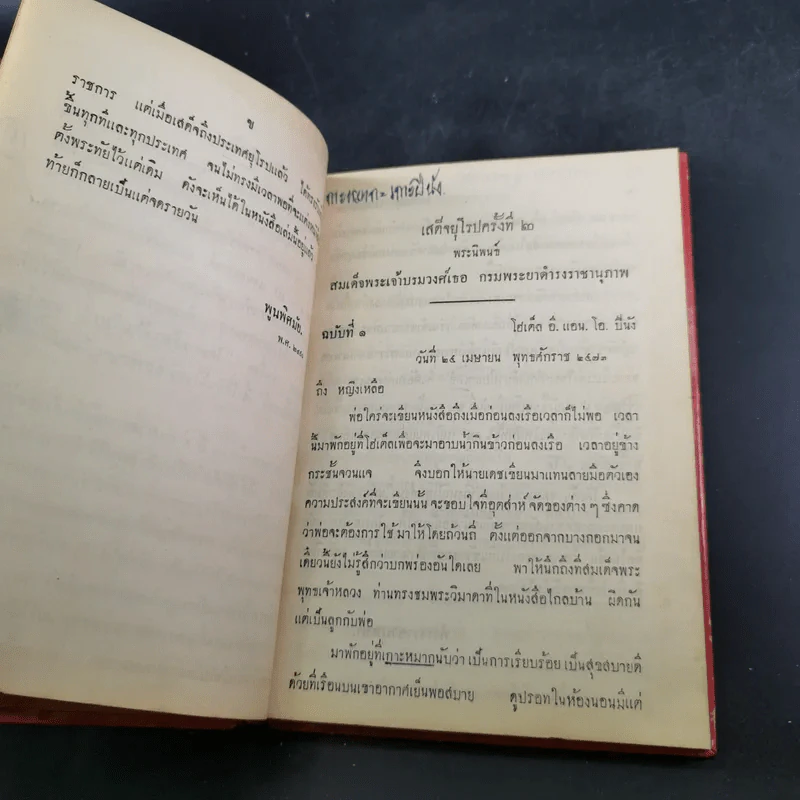 ข
ราชการ แต่เมื่อเสด็จถึงประเทศยุโรปแล้ว
ขึ้นทุกที่และทุกประเทศ จนไม่ทรงมีเวลาพอที่จะ
ตั้งพระทัยไว้แต่เดิม ดังจะเห็นได้ในหนังสือเล่มนี้อยู่แล้ว
ท้ายก็กลายเป็นแต่จดรายวัน
พูนพิศมัย.
พ.ศ.
เสด็จยุโรปครั้งที่ ๒
พระนิพนธ์
สมเด็จพระเจ้าบรมวงศ์เธอ กรมพระยาดำรงราชานุภาพ
ฉบับที่ ๑
โฮเต็ล อี. แอน. โอ. ปีนัง
วันที่ ๒๕ เมษายน พุทธศักราช ๒๔๗๓
ถึง หญิงเหลือ
พ่อใคร่จะเขียนหนังสือถึงเมื่อก่อนลงเรือเวลาก็ไม่พอ เวลา
นี้มาพักอยู่ที่โฮเต็ลเพื่อจะมาอาบน้ำกินข้าวก่อนลงเรือ เวลาอยู่ข้าง
กระชั้นจวนแจ จึงบอกให้นายเดชเขียนมาแทนลายมือตัวเอง
ความประสงค์ที่จะเขียนนั้น จะขอบใจที่อุตส่าห์ จัดของต่าง ๆ ซึ่งคาด
ว่าพ่อจะต้องการใช้ มาให้โดยถ้วนถี่ ตั้งแต่ออกจากบางกอกมาจน
เดี๋ยวนี้ยังไม่รู้สึกว่าบกพร่องอันใดเลย พาให้นึกถึงที่สมเด็จพระ
พุทธเจ้าหลวง ท่านทรงชมพระวิมาดาที่ในหนังสือไกลบ้าน ผิดกัน
แต่เป็นลูกกับพ่อ
มาพักอยู่ที่เกาะหมากนับว่า เป็นการเรียบร้อย เป็นสุขสบายดี
ด้วยที่เรือนบนเขาอากาศเย็นพอสบาย ดูปรอทในห้องนอนมีแต่